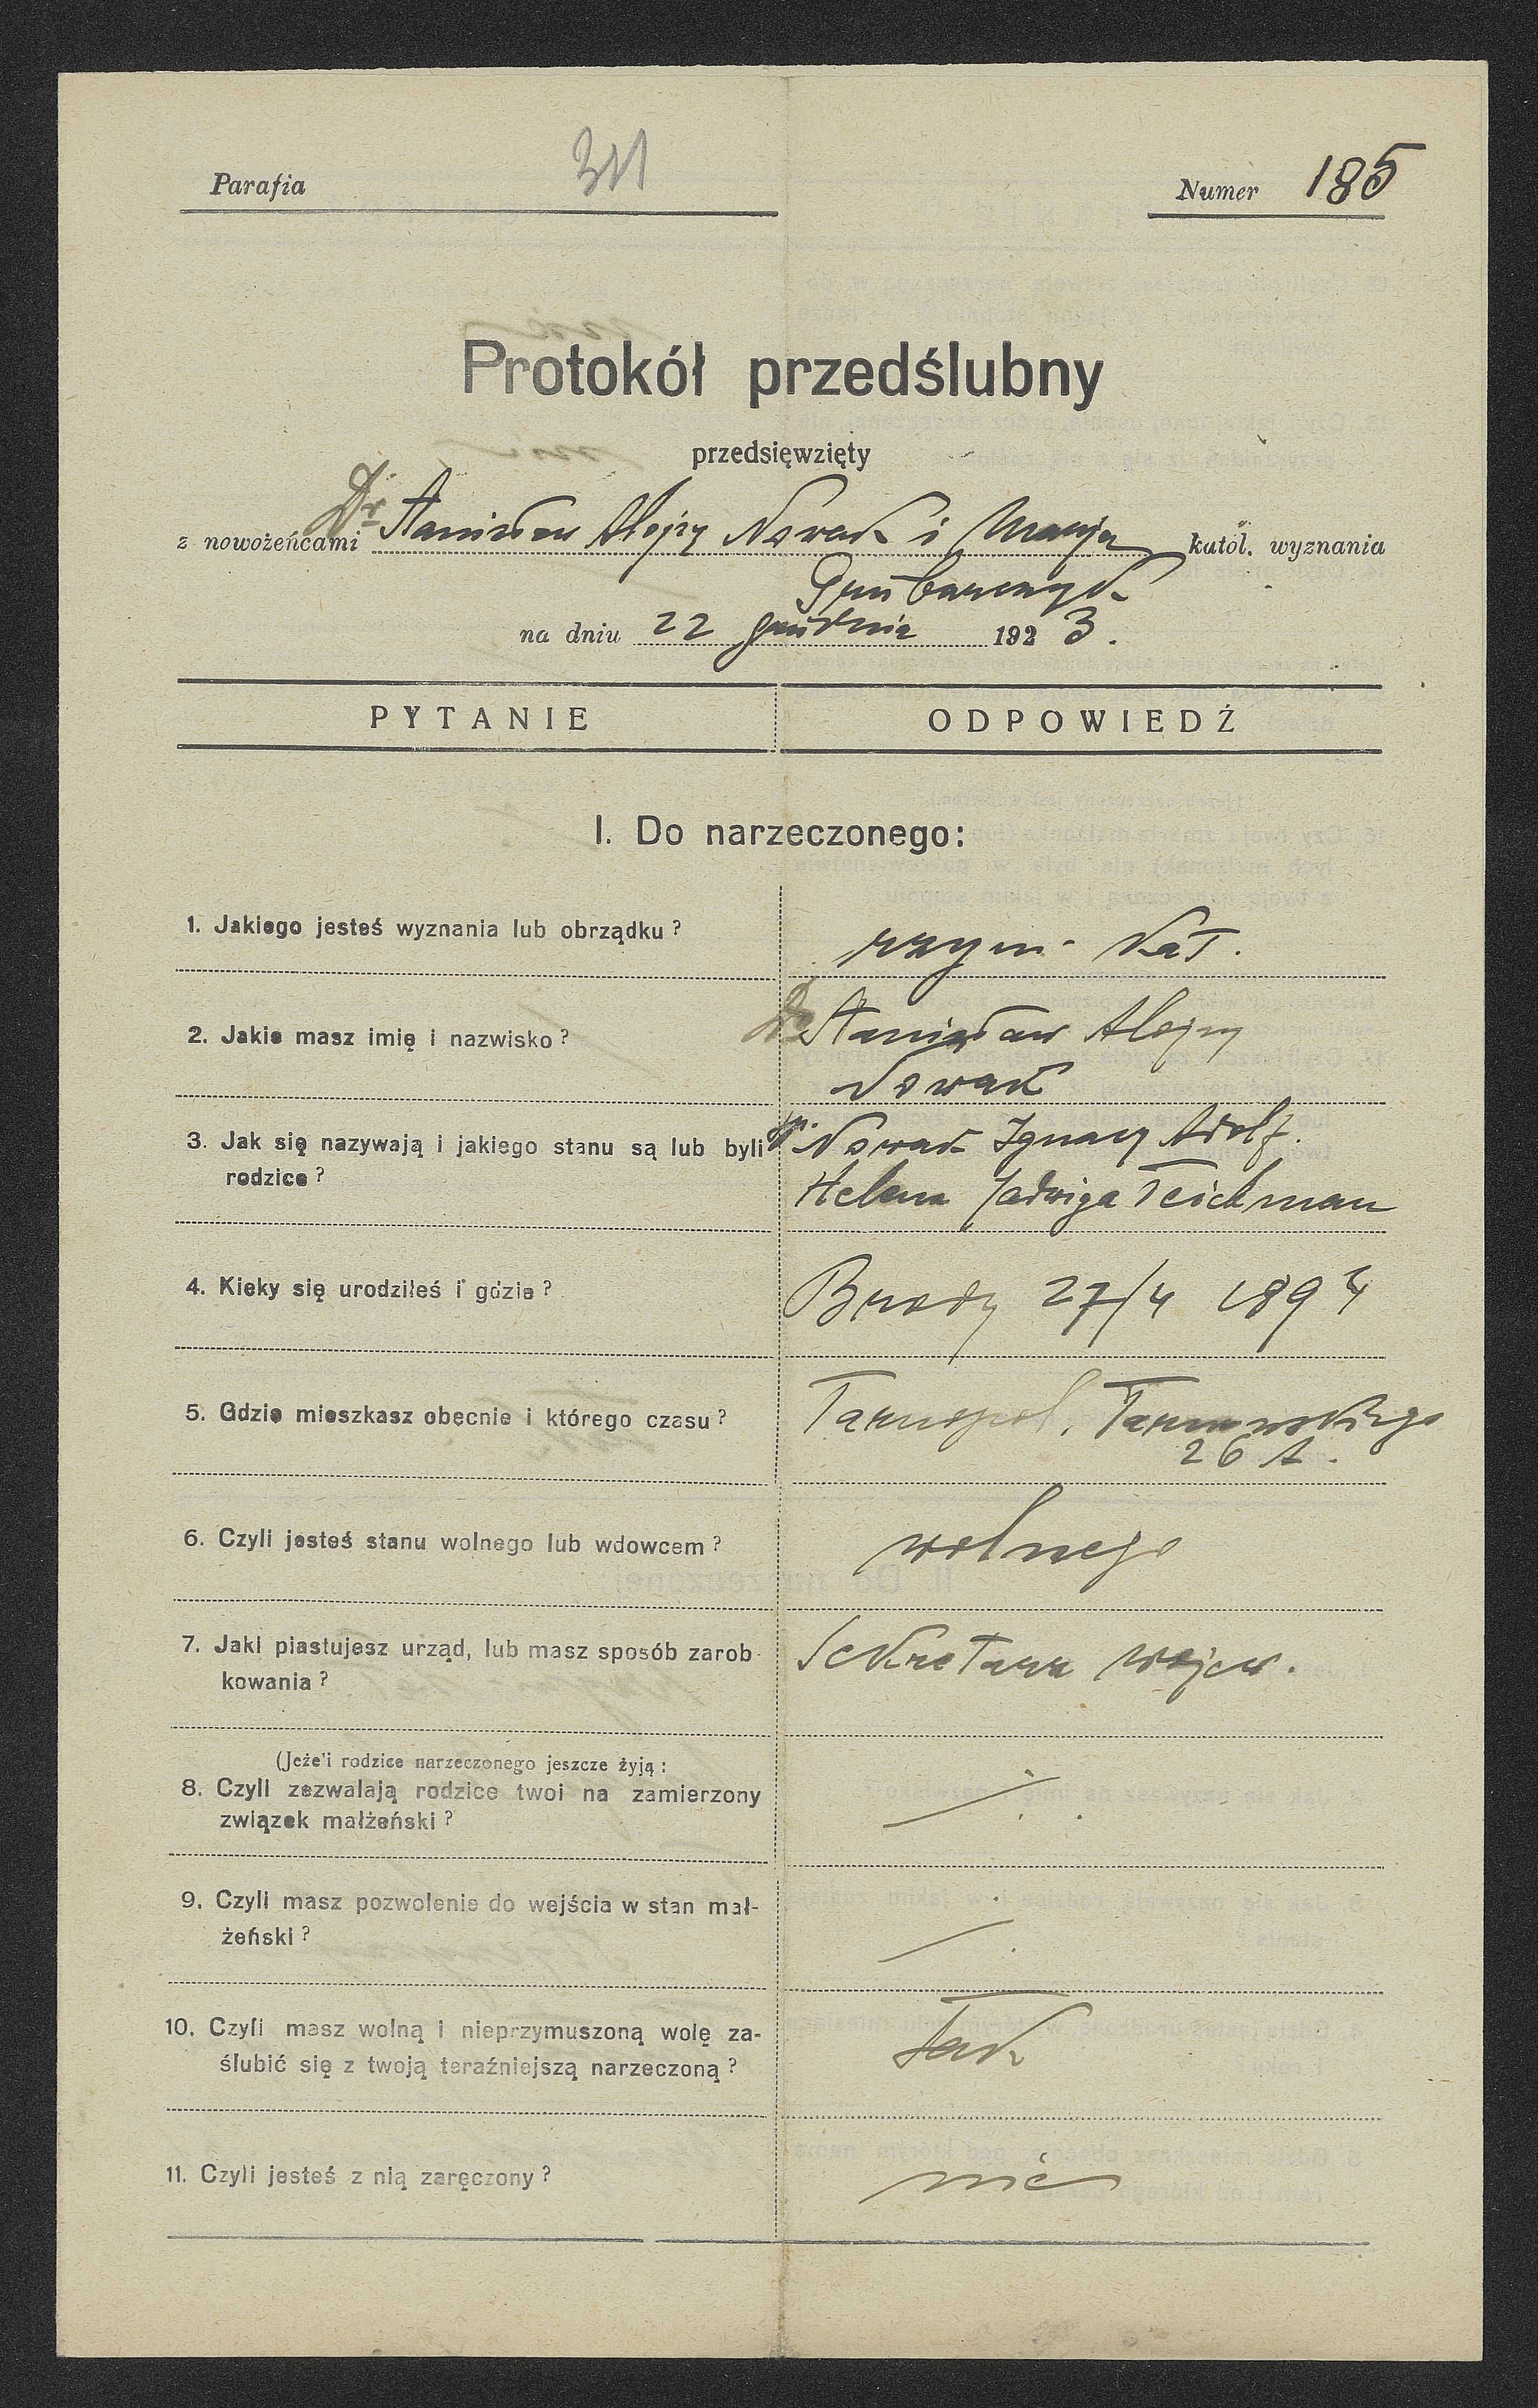 Parafia 311 Numer 185
Protokół przedślubny
przedsięwzięty
z nowożeńcami Dr Stanisław Alojzy Nowak i Marja katol. wyznania
Grubarczyk
na dniu 22 grudnia 1923.
PYTANIE ODPOWIEDŹ
I. Do narzeczonego:
1. Jakiego jesteś wyznania lub obrządku? rzym. kat.
2. Jakie masz imię i nazwisko? Dr Stanisław Alojzy
Nowak
3. Jak się nazywają i jakiego stanu są lub byli Nowak Ignacy Adolf.
rodzice? Helena Jadwiga Teichman
4. Kieky się urodziłeś i gdzie? Brody 27/4 1894
5. Gdzie mieszkasz obecnie i którego czasu? Tarnopol, Tarnowskiego
26 A.
6. Czyli jesteś stanu wolnego lub wdowcem? wolnego
7. Jaki piastujesz urząd, lub masz sposób zarob- Sekretarz wojew.
kowania?
(Jeżeli rodzice narzeczonego jeszcze żyją:
8. Czyli zezwalają rodzice twoi na zamierzony
związek małżeński?
9. Czyli masz pozwolenie do wejścia w stan mał-
żeński?
10. Czyli masz wolną i nieprzymuszoną wolę za- Tak
ślubić się z twoją teraźniejszą narzeczoną?
11. Czyli jesteś z nią zaręczony? nie